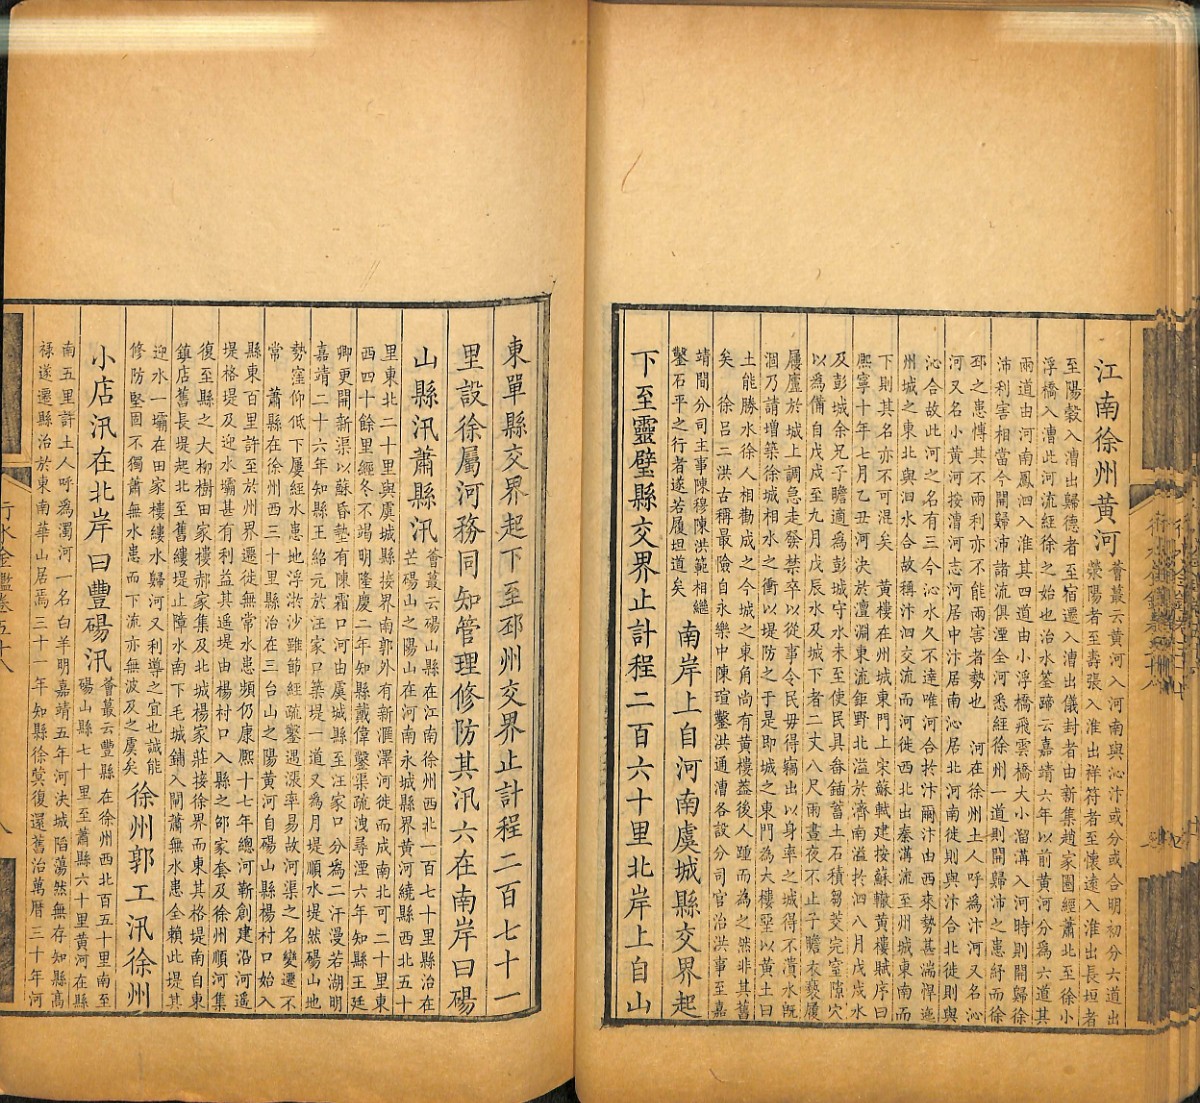 江南徐州黄河
薈蕞云黄河入河南與沁汴或分或合明初分六道出
滎陽者至壽張入淮出祥符者至懷遠入淮出長垣者
至陽穀入漕出歸德者至宿遷入漕出儀封者由新集趙家圈經蕭北至徐小
浮橋入漕此河流經徐之始也治水筌蹄云嘉靖六年以前黄河分為六道其
兩道由河南鳳泗入淮其四道由小浮橋飛雲橋大小溜溝入河時則開歸徐
沛利害相當今開歸沛諸流俱湮全河悉經徐州一道則開歸沛之患紓而徐
邳之患博其不兩利亦不能兩害者勢也　河在徐州土人呼為汴河又名沁
河又名小黄河按漕河志河居中汴居南沁居北河南徙則與汴合北徙則與
沁合故此河之名有三今沁水久不達唯河合於汴爾汴由西來勢甚湍悍迤
州城之東北與泗水合故稱汴泗交流而河徙西北出秦溝流至州城東南而
下則其名亦不可混矣　黄樓在州城東門上宋蘇軾建按蘇轍黄樓賦序曰
熙寧十年七月乙丑河決於澶淵東流鉅野北溢於濟南溢於泗八月戊戌水
及彭城余兄子瞻適為彭城守水未至使民具畚鍤蓄土石積芻茭完窒隙穴
以為備自戊戌至九月戊辰水及城下者二丈八尺雨晝夜不止子瞻衣蓑履
屨廬於城上調急走發禁卒以從事令民毋得竊出以身率之城得不潰水旣
涸乃請增築徐城相水之衝以堤防之于是即城之東門為大樓堊以黄土曰
土能勝水徐人相勸成之今城之東角尚有黄樓蓋後人踵而為之然非其舊
矣　徐吕二洪古稱最險自永樂中陳瑄鑿洪通漕各設分司官治洪事至嘉
靖間分司主事陳穆陳洪範相繼
鑿石平之行者遂若履坦道矣
南岸上自河南虞城縣交界起
下至靈璧縣交界止計程二百六十里北岸上自山
東單縣交界起下至邳州交界止計程二百七十一
里設徐屬河務同知管理修防其汛六在南岸曰碭
山縣汛蕭縣汛
薈蕞云碭山縣在江南徐州西北一百七十里縣治在
芒碭山之陽山在河南永城縣界黄河繞縣西北五十
里東北二十里與虞城縣接界南郭外有新滙澤河徙而成南北可二十里東
西四十餘里經冬不竭明隆慶二年知縣戴偉鑿渠疏洩尋湮六年知縣王廷
卿更開新渠以蘇昏墊有陳霜口河由虞城縣至汪家口分為二汗漫若湖明
嘉靖二十六年知縣王紹元於汪家口築堤一道又為月堤堤順水堤然碭山地
勢窪仰低下屢經水患地浮淤沙雖節經疏鑿遇漲率易故河渠之名變遷不
常　蕭縣在徐州西三十里縣治在三台山之陽黄河自碭山縣楊村口始入
縣東百里許至於州界遷徙無常水患頻仍康熙十七年總河靳創建沿河遙
堤格堤及迎水壩甚有利益其遥堤由楊村口入縣之邹家套及徐州順河集
復至縣之大柳樹田家樓郝家集及北城楊家莊接徐界而東其格堤南自東
鎮店舊長堤起北至舊縷堤止障水南下毛城鋪入閘蕭無水患全賴此堤其
迎水一壩在田家樓縷水歸河又利導之宜也誠能
修防堅固不獨蕭無水患而下流亦無波及之虞矣
徐州郭工汛徐州
小店汛在北岸曰豐碭汛
薈蕞云豐縣在徐州西北百五十里南至
碭山縣七十里至蕭縣六十里黄河在縣
南五里許土人呼為濁河一名白羊明嘉靖五年河決城陷蕩然無存知縣高
祿遂遷縣治於東南華山居焉三十一年知縣徐蓂復還舊治萬曆三十年河
行水金鑑卷五十八